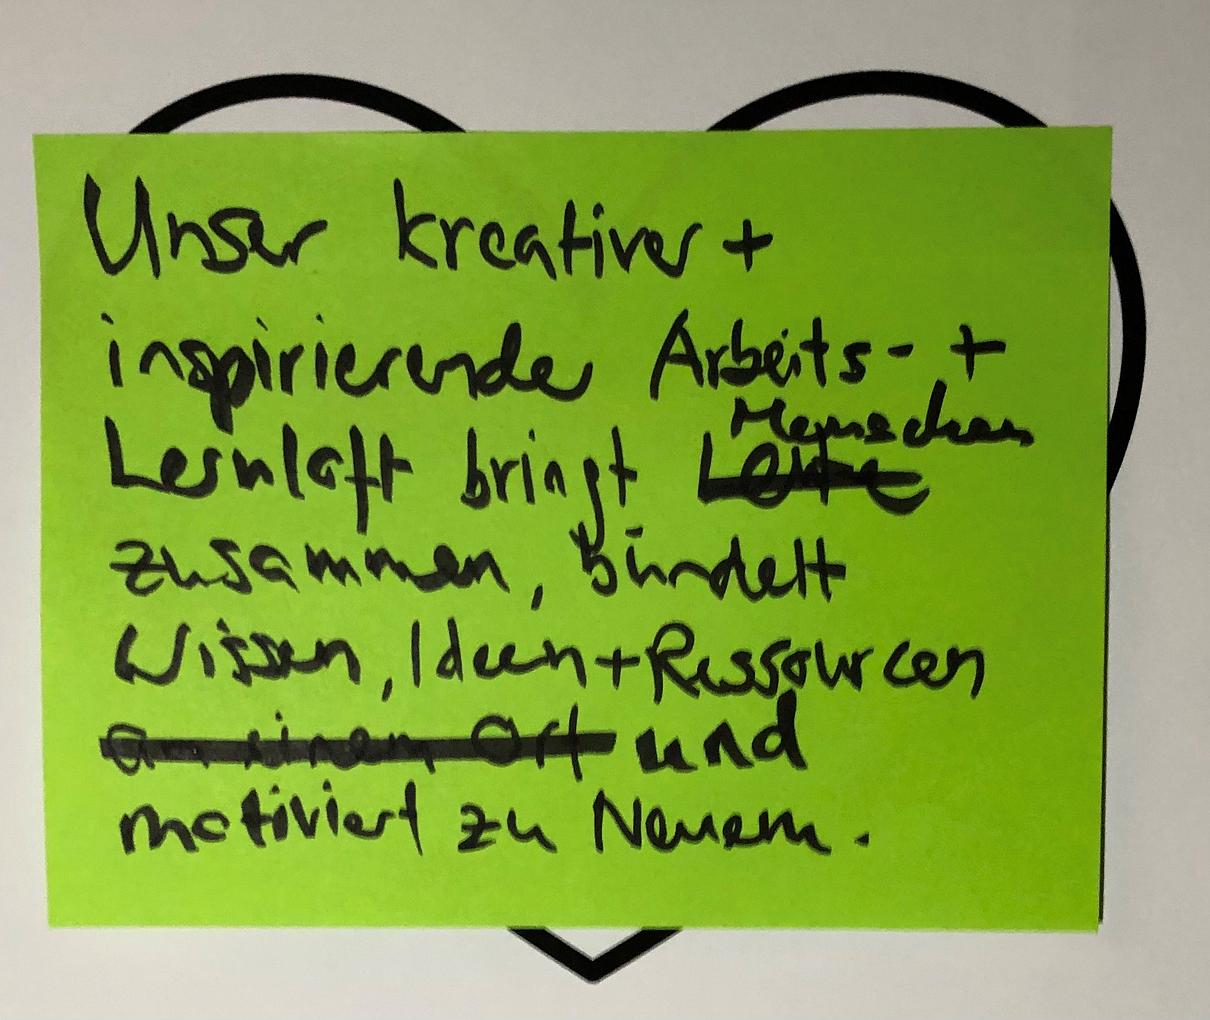 Unser kreativer +
inspirierende Arbeits- +
Menschen
Lernloft bringt Leute
zusammen, bündelt
Wissen, Ideen + Ressourcen
an einem Ort und
motiviert zu Neuem.